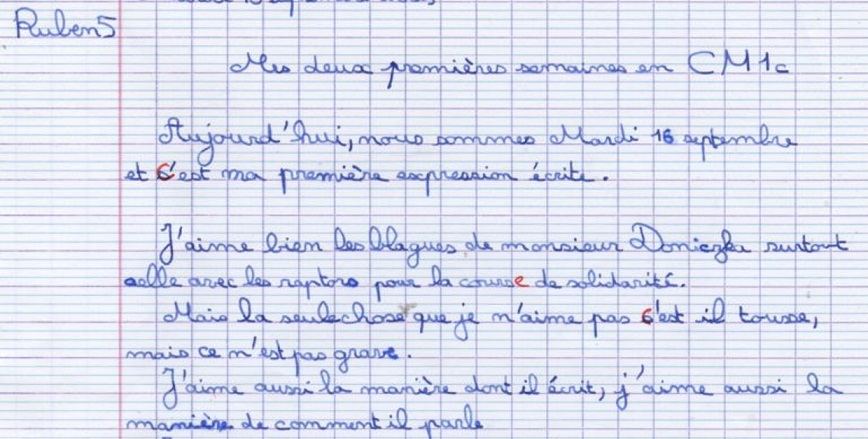 Ruben5
Mes deux premières semaines en CM1c
Aujourd'hui, nous sommes Mardi 16 septembre
et c'est ma première expression écrite.
J'aime bien les blagues de monsieur Doniezka surtout
celle avec les raptors pour la course de solidarité.
Mais la seule chose que je n'aime pas c'est il tousse,
mais ce n'est pas grave.
J'aime aussi la manière dont il écrit, j'aime aussi la
manière de comment il parle